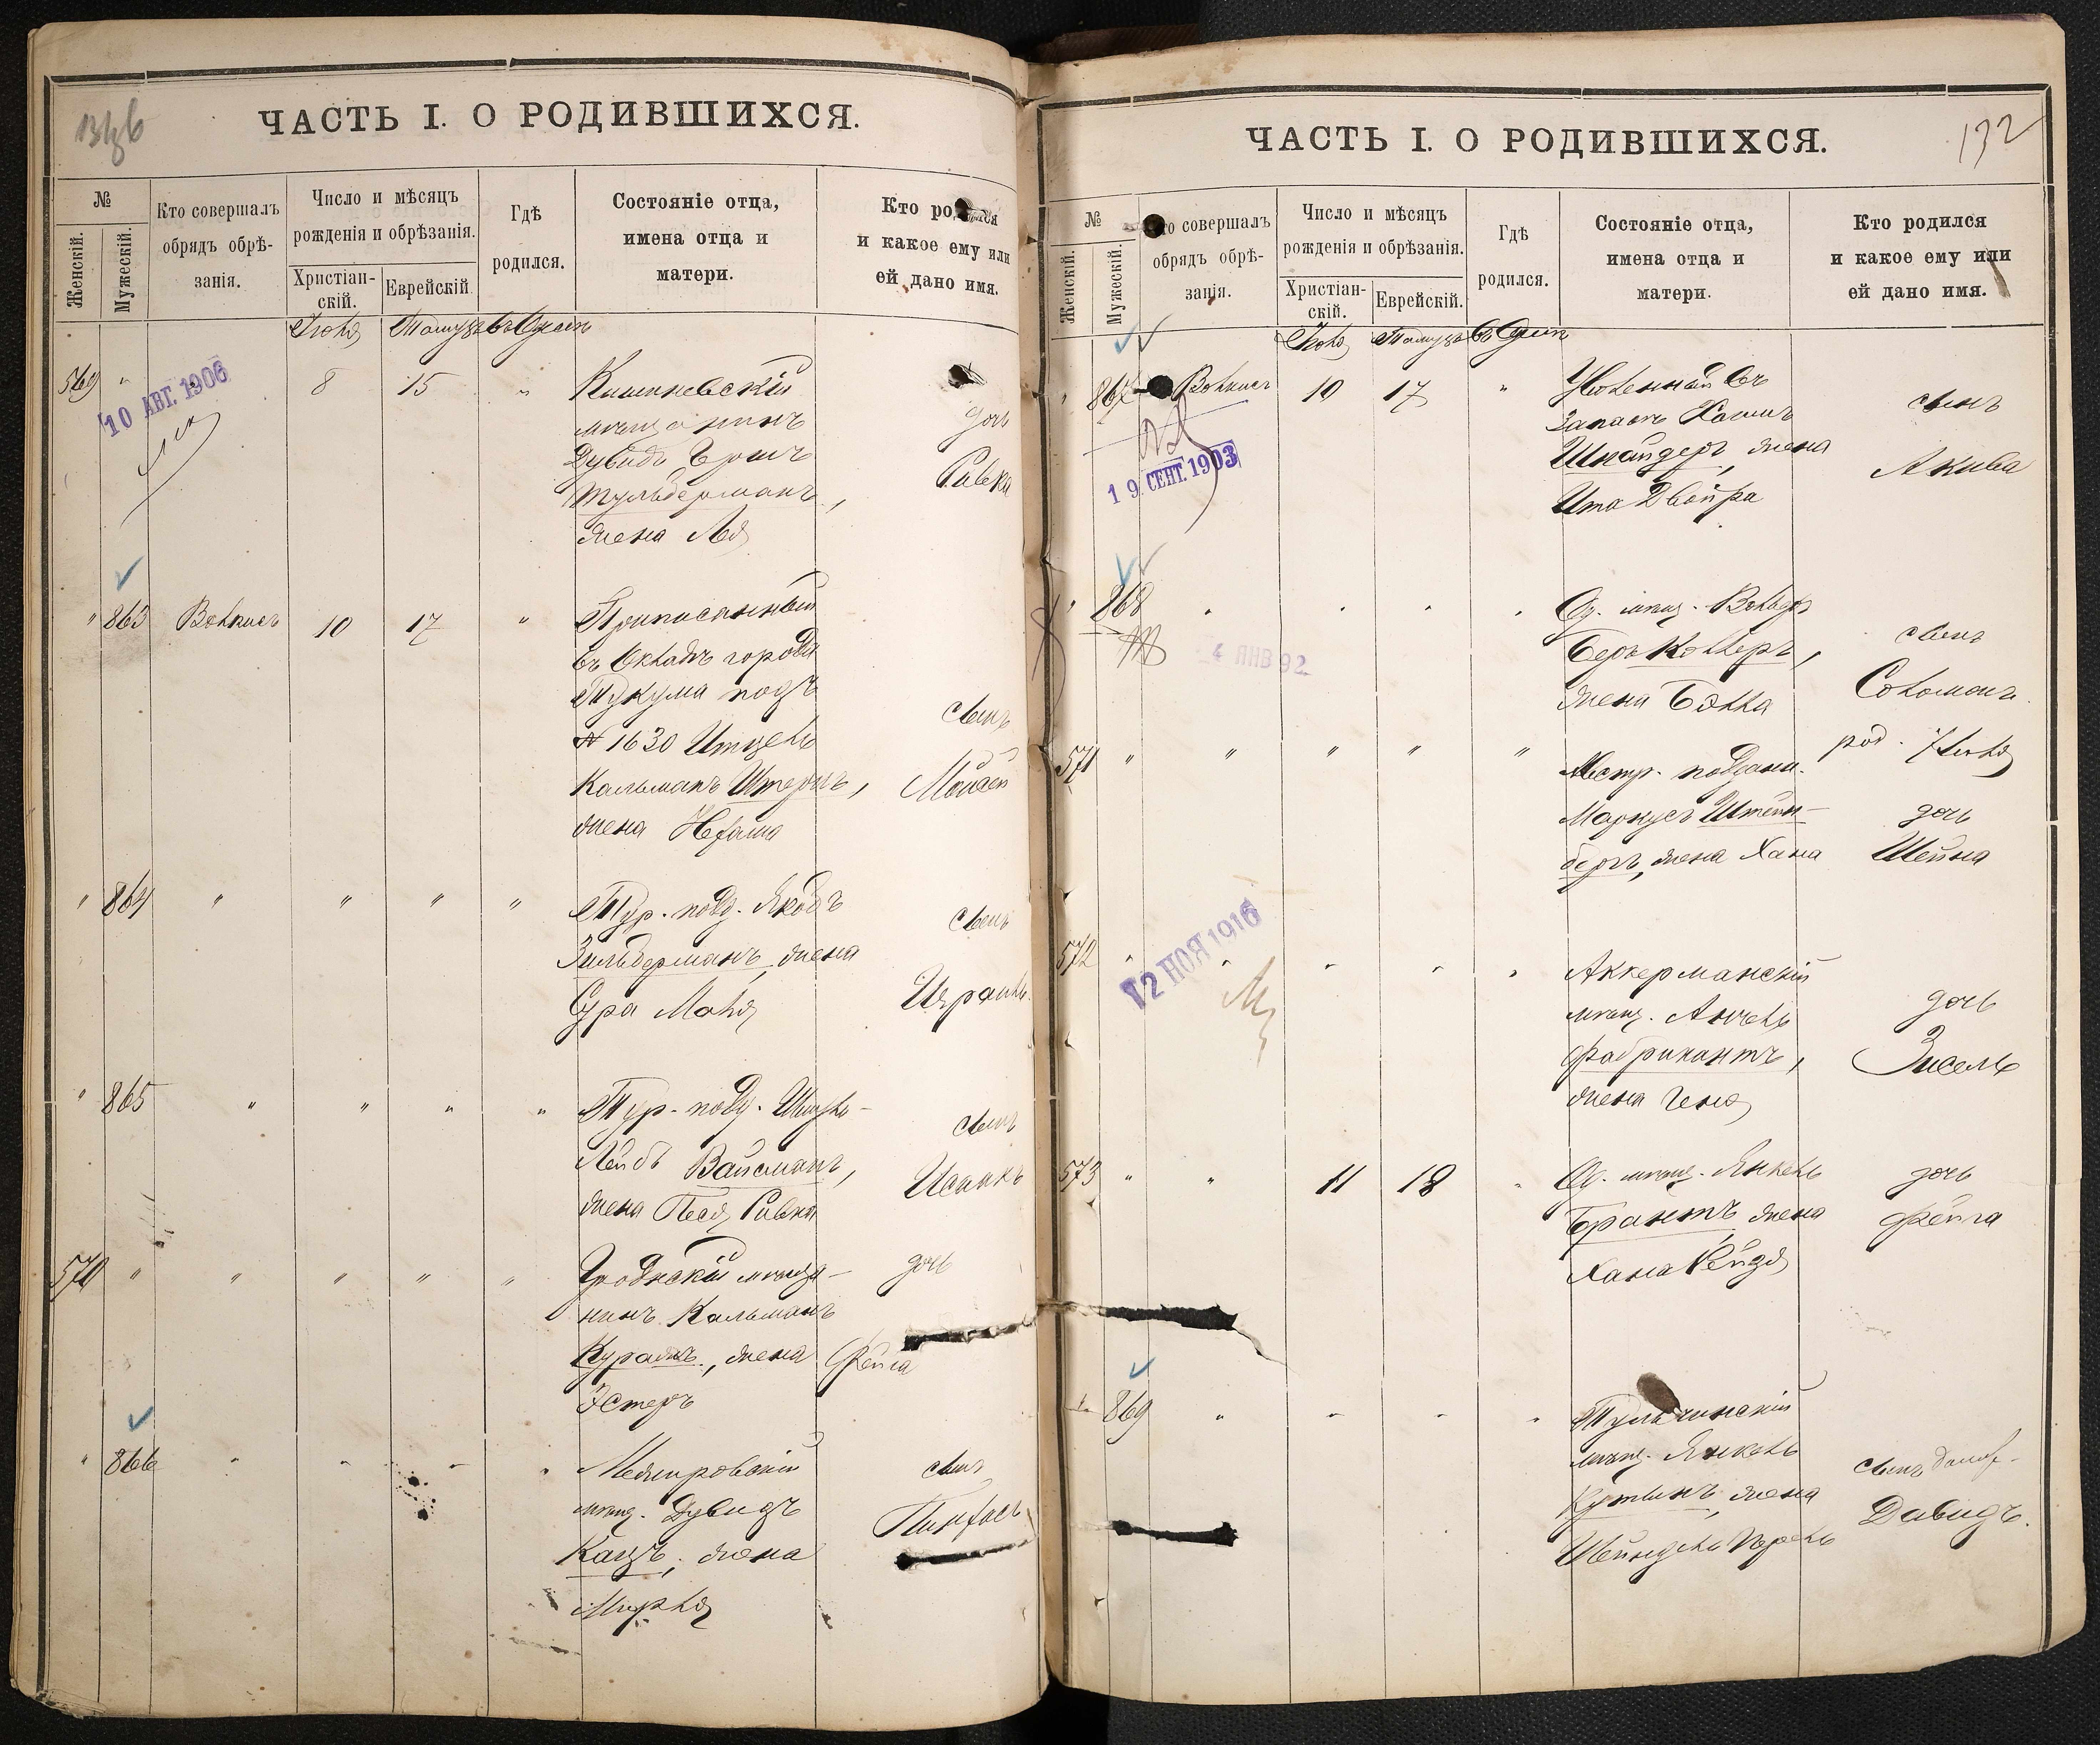 ЧАСТЬ I. О РОДИВШИХСЯ.
№
Женскій.
Мужескій.
Кто совершалъ
обрядъ обрѣ-
занія.
Число и мѣсяцъ
рожденія и обрѣзанія.
Христіан-
скій.
Еврейскій
Гдѣ
родился.
Состояніе отца,
имена отца и
матери.
Кто родился
и какое ему или
ей дано имя.
Іюля Тамуза въ Одессѣ
569 " 8 15 "
10 АВГ. 1906
Кишиневскій
мѣщанинъ
Дувидъ Гершъ
жена Лея
дочь
Ривка
" 863 10 17 "
Приписанный
въ окладъ города
Тукума подъ
№ 1630 Ицель
Кальманъ Штернъ,
жена
сынъ
Мойсей
" 864 " " " "
Тур. подд. Якобъ
Зильберманъ, жена
Сура Маля
сынъ
Израиль
" 865 " " " "
Тур. подд.
Лейбъ Вайсманъ,
жена Песя Ривка
сынъ
Исаакъ
570 " " " " "
Гродненскій мѣща-
нинъ Кальманъ
жена
Эстеръ
дочь
Фейга
" 866 " " " "
мѣщ. Дувидъ
Кацъ, жена
сынъ
Пинхасъ
ЧАСТЬ I. О РОДИВШИХСЯ.
132
№
Женскій.
Мужескій.
Кто совершалъ
обрядъ обрѣ-
занія.
Число и мѣсяцъ
рожденія и обрѣзанія.
Христіан-
скій.
Еврейскій.
Гдѣ
родился.
Состояніе отца,
имена отца и
матери.
Кто родился
и какое ему или
ей дано имя.
Іюля Тамуза въ Одессѣ
" 867 10 17 "
19 СЕНТ. 1903
Уволенный въ
запасъ Хаимъ
Шнайдеръ, жена
Ита Двойра
сынъ
Акива
" 868 " " " "
4 ЯНВ 92
Од. мѣщ. Вольфъ
Беръ Коллеръ,
жена Бэлла
сынъ
Соломонъ
род. 7 Іюля
571 " " " " "
Австр. поддан.
Маркусъ Штейн-
бергъ, жена Хана
дочь
Шейна
572 " " " " "
12 НОЯ 1916
Аккерманскій
мѣщ. Анчель
Фабрикантъ,
жена Геня
дочь
Зисель
573 " " 11 18 "
Од. мѣщ. Янкель
Брантъ, жена
Хана Рейзя
дочь
Фейга
" 869 " " " "
Тульчинскій
мѣщ. Янкель
жена
Шейндель Перель
сынъ
Давидъ.